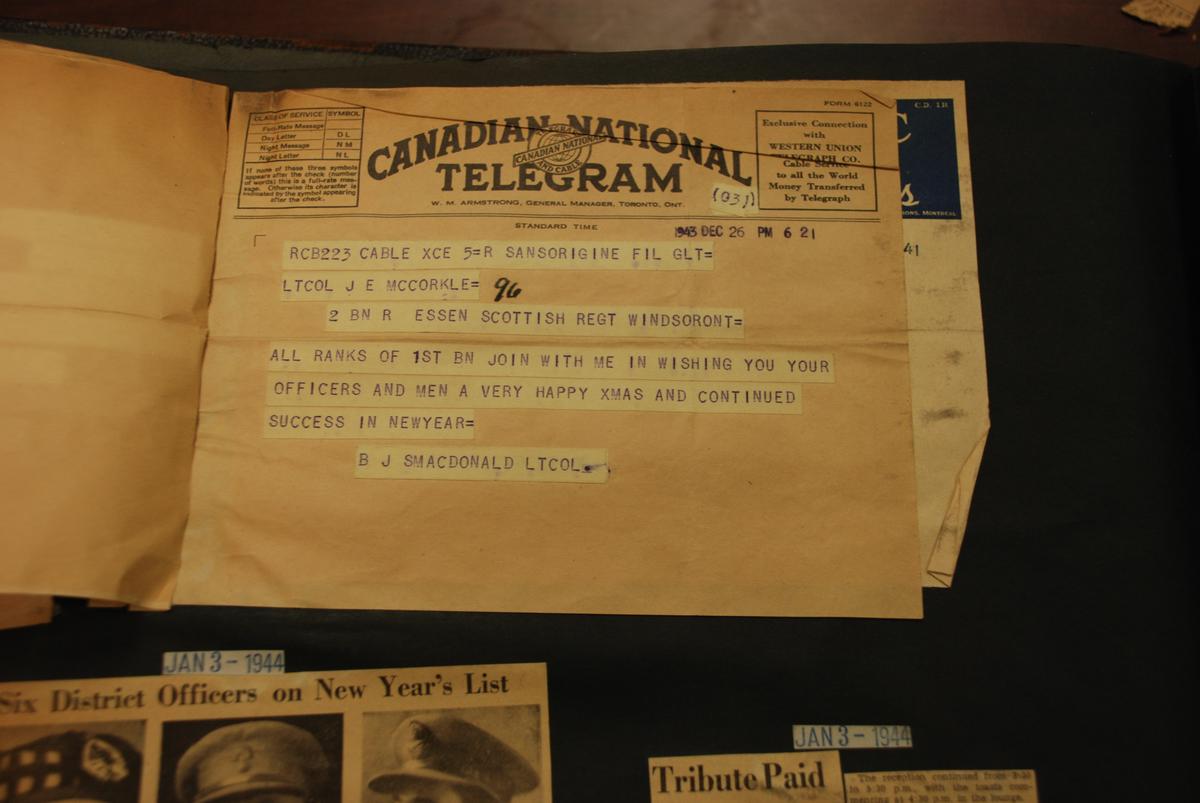 CLASS OF SERVICE SYMBOL
Full-Rate Message
Day Letter D L
Night Message N M
Night Letter N L
If none of these three symbols
appears after the check (number
of words) this is a full-rate mes-
sage. Otherwise its character is
indicated by the symbol appearing
after the check.
CANADIAN NATIONAL
TELEGRAM
CANADIAN NATIONAL
AND CABLE
W. M. ARMSTRONG, GENERAL MANAGER, TORONTO, ONT.
FORM 6122
Exclusive Connection
with
WESTERN UNION
TELEGRAPH CO.
Cable Service
to all the World
Money Transferred
by Telegraph
(03)
STANDARD TIME
1943 DEC 26 PM 6 21
RCB223 CABLE XCE 5=R SANSORIGINE FIL GLT=
LTCOL J E MCCORKLE= 96
2 BN R ESSEN SCOTTISH REGT WINDSORONT=
ALL RANKS OF 1ST BN JOIN WITH ME IN WISHING YOU YOUR
OFFICERS AND MEN A VERY HAPPY XMAS AND CONTINUED
SUCCESS IN NEWYEAR=
B J SMACDONALD LTCOL.
C.D. 1R
MONTREAL
41
JAN 3 - 1944
Six District Officers on New Year's List
JAN 3 - 1944
Tribute Paid
The reception continued from
to 5:30 p.m., with the toasts com-
mencing at 4:30 p.m. in the lounge.